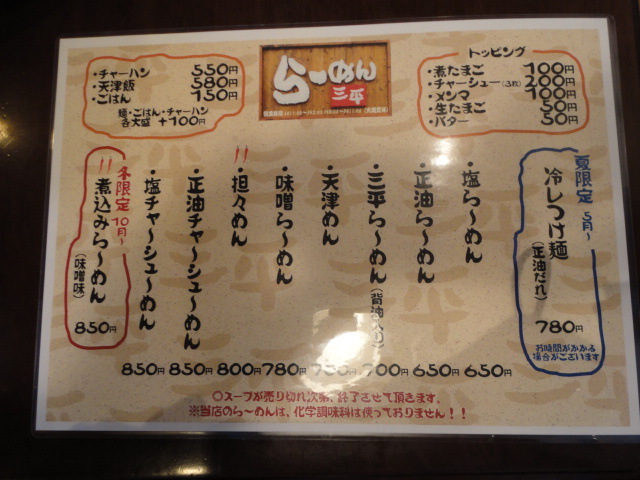 ・チャーハン 550円
・天津飯 580円
・ごはん 150円
麺・ごはん・チャーハン
各大盛 +100円
らーめん
三平
トッピング
・煮たまご 100円
・チャーシュー(3枚) 200円
・メンマ 100円
・生たまご 50円
・バター 50円
夏限定 5月〜
冷しつけ麺(正油だれ) 780円
お時間がかかる
場合がございます
塩らーめん 650円
正油らーめん 650円
三平らーめん(背油入り) 700円
天津めん
味噌らーめん 780円
!! 担々めん 800円
正油チャーシューめん 850円
塩チャーシューめん 850円
冬限定 10月〜
!! 煮込みらーめん(味噌味) 850円
○スープが売り切れ次第、終了させて頂きます。
※当店のら〜めんは、化学調味料は使っておりません!!